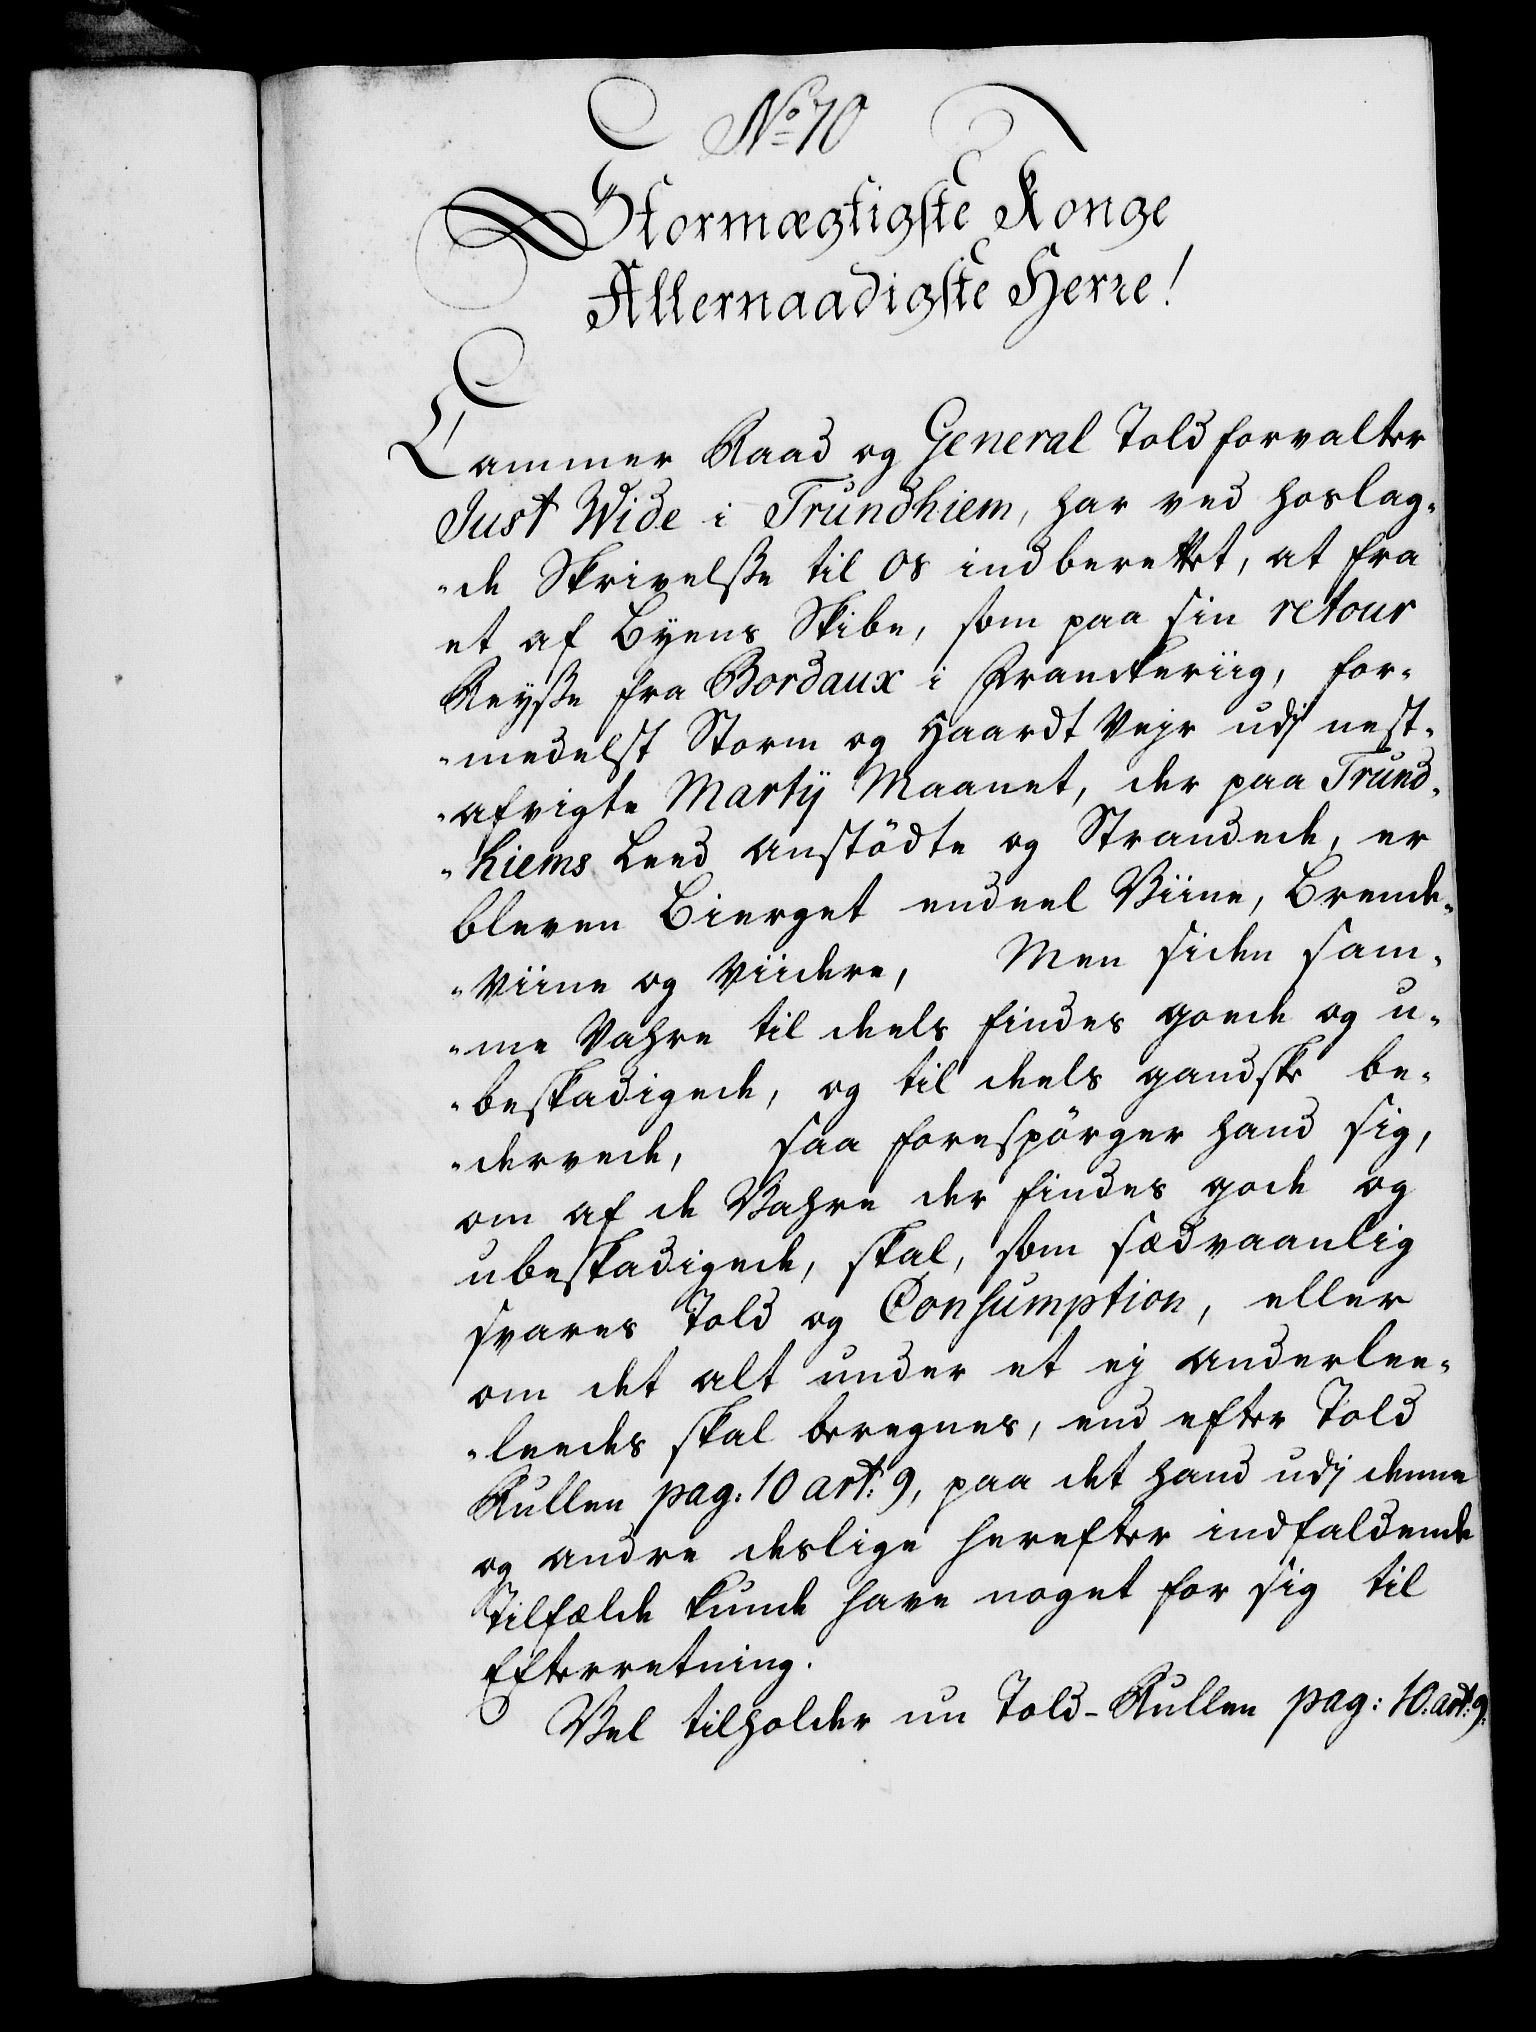 No 70
Stormægtigste Konge
Allernaadigste Herre!
Cammer Raad og General Told forvalter
Just Wide i Trundhiem, har ved hoslag-
-de Skrivelsse til Os indberettet, at fra
et af Byens Skibe, som paa sin retour
Reysse fra Bordaux i Franckeriig, for-
-medelst Storm og Haardt Vejr udj nest-
-afvigte Martij Maanet, der paa Trund-
-hiems Leed anstödte og Strandede, er
bleven Bierget endeel Viine, Brende-
-Viine og Viidere, Men siden sam-
-me Vahre til deels findes goede og u-
-beskadigede, og til deels gandske be-
-dervede, saa forespörger hand sig,
om af de Vahre der findes gode og
ubeskadigede, skal, som sædvaanlig
svares Told og Consumption, eller
om det alt under et ej anderlee-
-leedes skal beregnes, end efter Told
Rullen pag: 10 art: 9, paa det hand udj denne
og andre deslige herefter indfaldende
Tilfælde kunde have noget for sig til
Efterretning.
Vel tilholder nu Told-Rullen pag: 10. art: 9.